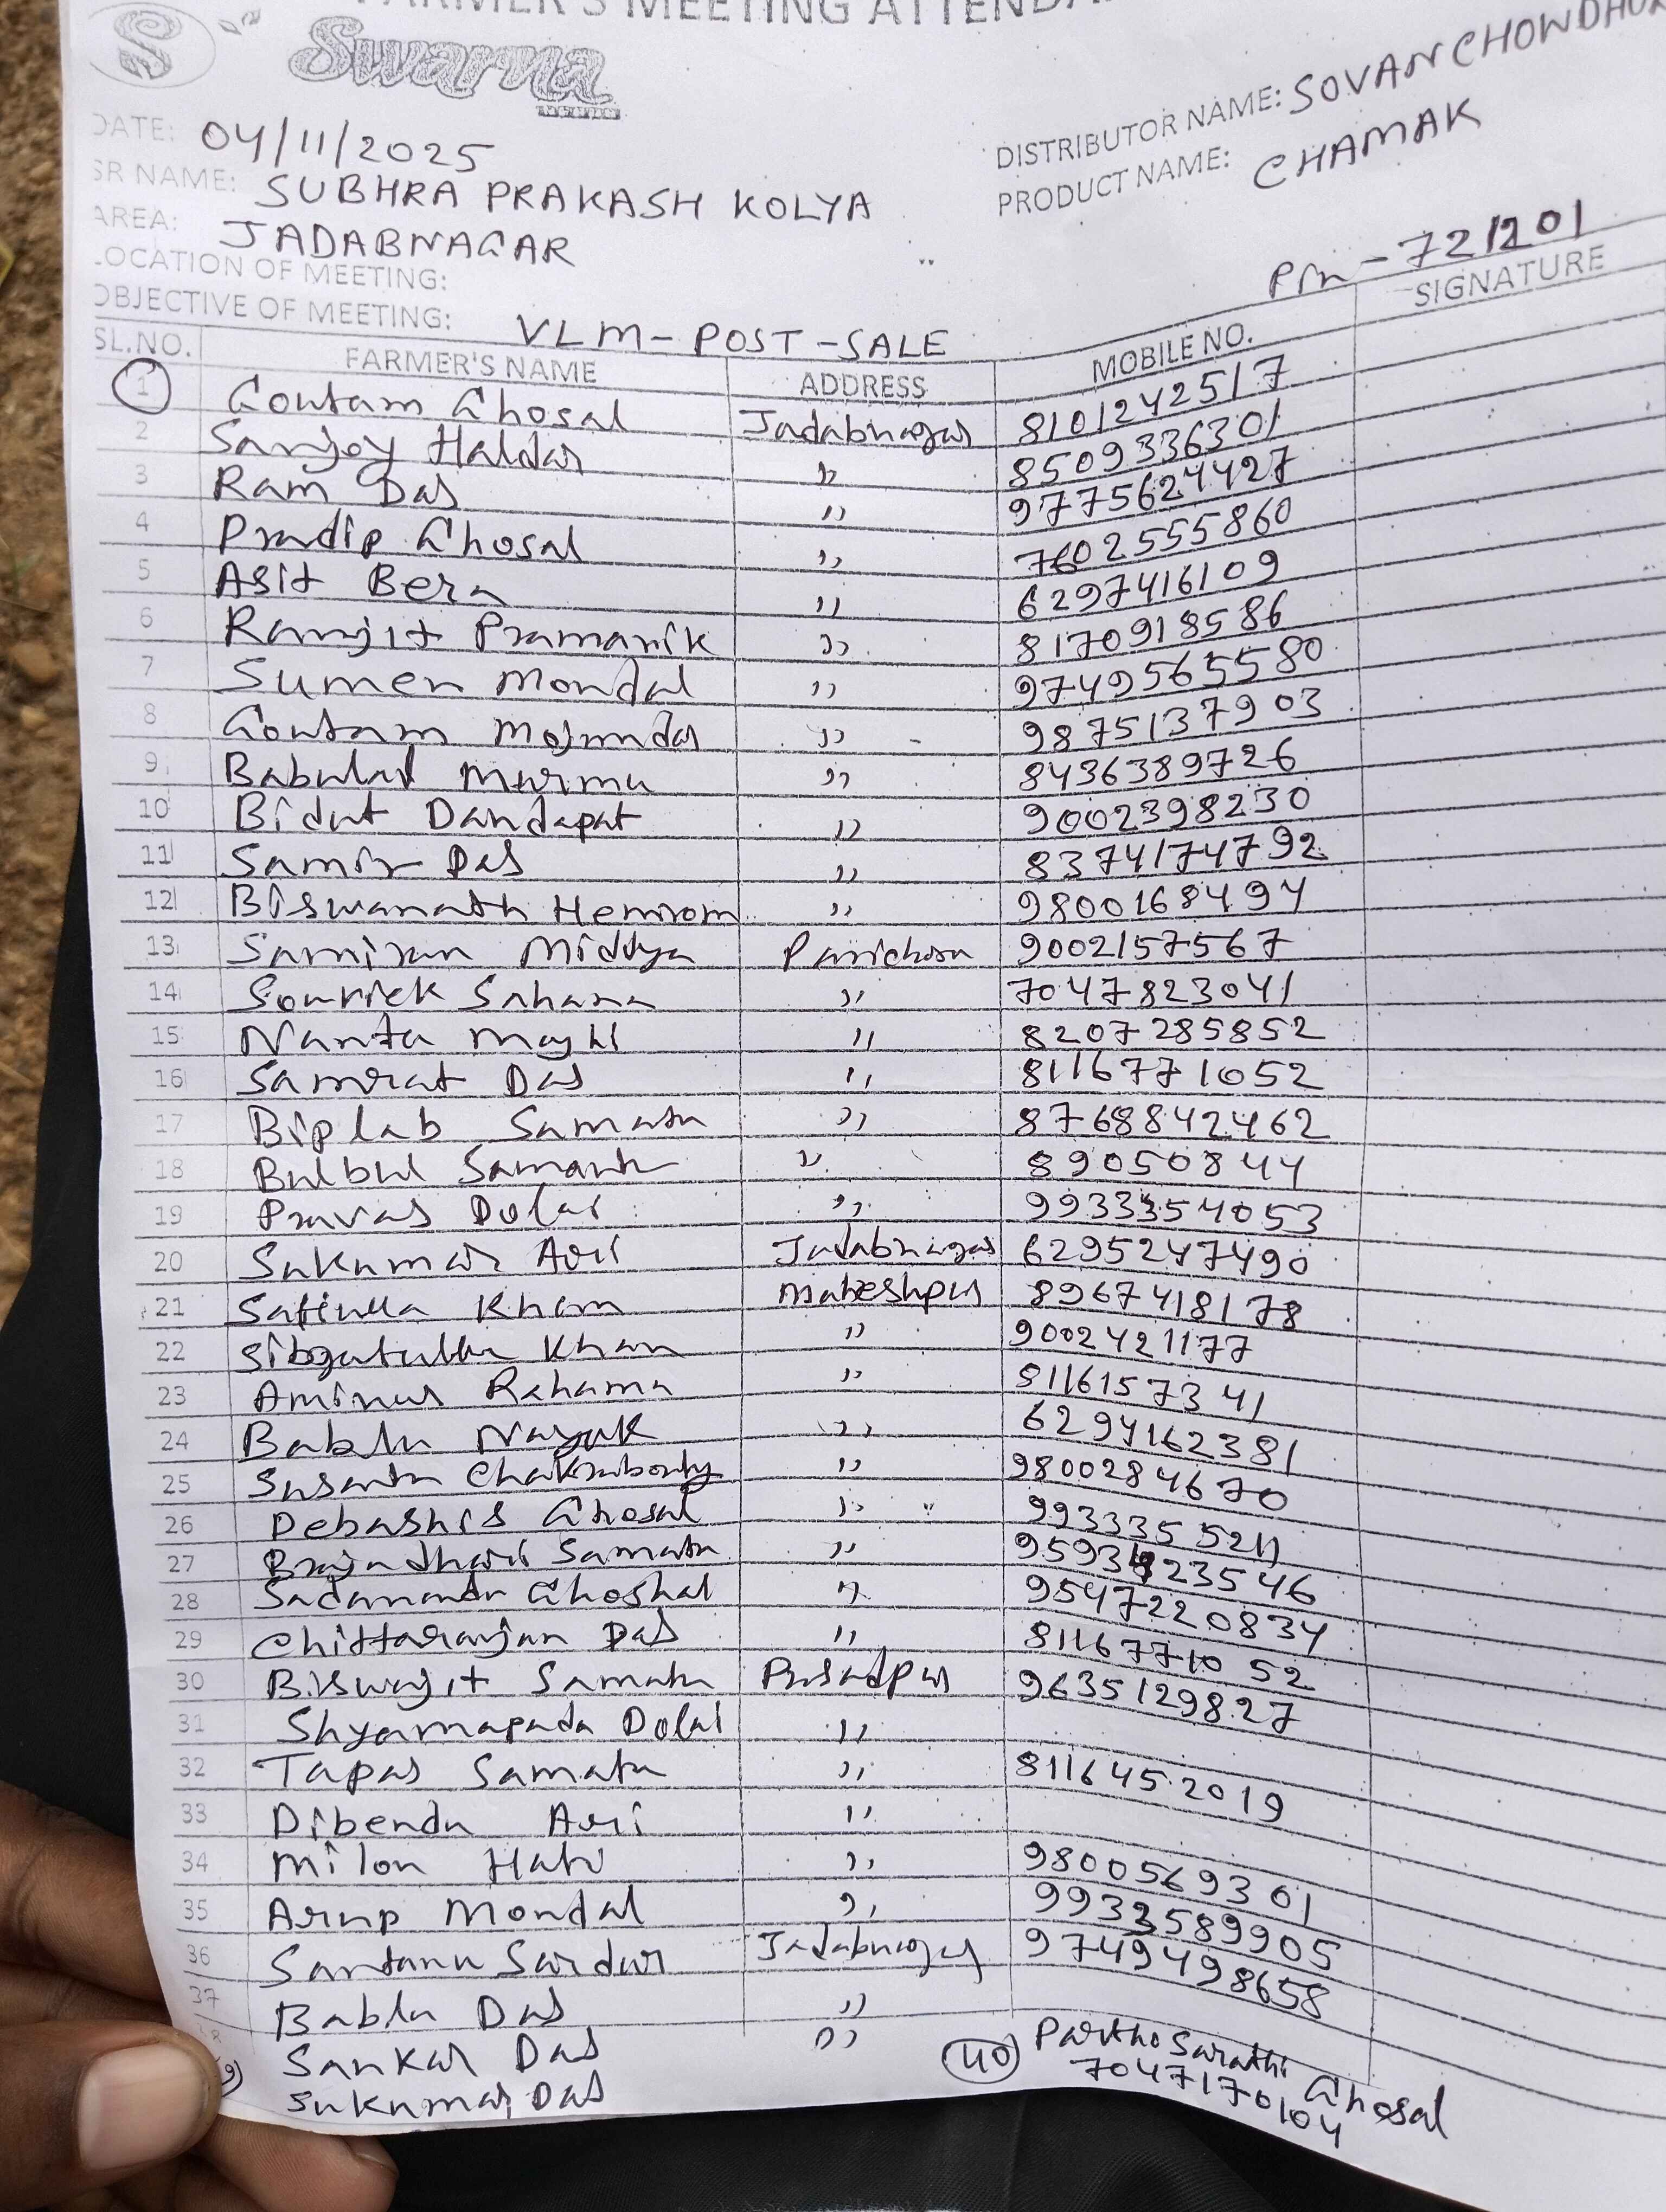 FARMER'S MEETING ATTENDA
S Swarna
DATE: 04/11/2025
DISTRIBUTOR NAME: SOVAN CHOWDHUR
SR NAME: SUBHRA PRAKASH KOLYA
PRODUCT NAME: CHAMAK
AREA: JADABNAGAR
LOCATION OF MEETING:
Pin - 721201
OBJECTIVE OF MEETING: VLM - POST - SALE
SL.NO. FARMER'S NAME ADDRESS MOBILE NO. SIGNATURE
1 Goutam Ghosal Jadabnagar 8101242517
2 Sanjoy Haldar " 8509336301
3 Ram Das " 9775624427
4 Pradip Ghosal " 7602555860
5 Asit Bera " 6297416109
6 Ranjit Pramanik " 8170918586
7 Sumen Mondal " 9749565580
8 Goutam Mojumdar " 9875137903
9 Babulal Murmu " 8436389726
10 Bidut Dandapat " 9002398230
11 Samir Das " 8374174792
12 Biswanath Hemrom " 9800168494
13 Samiran Middya Panichora 9002157567
14 Souvick Sahana " 7047823041
15 Nanta Majhi " 8207285852
16 Samrat Das " 8116771052
17 Biplab Samata " 8768842462
18 Bulbul Samanta " 89050844
19 Pravas Dolai " 9933354053
20 Sukumar Ari Jadabnagar 6295247490
21 Safiulla Khan Maheshpur 8967418178
22 Sibgatulla Khan " 9002421177
23 Aminur Rahama " 8116157341
24 Bablu Nayak " 6294162381
25 Susanta Chakraborty " 9800284670
26 Debashis Ghosal " 9933355211
27 Brajadhari Samata " 9593423546
28 Sadananda Ghoshal " 9547220834
29 Chittaranjan Das " 8116771052
30 Biswajit Samata Prasadpur 9635129827
31 Shyamapada Dolai "
32 Tapas Samata " 8116452019
33 Dibendu Ari "
34 Milon Hato " 9800569301
35 Arup Mondal " 9933589905
36 Santanu Sardar Jadabnagar 9749498658
37 Bablu Das "
38 Sankar Das "
Sukumar Das
40 Partho Sarathi Ghosal
7047170104